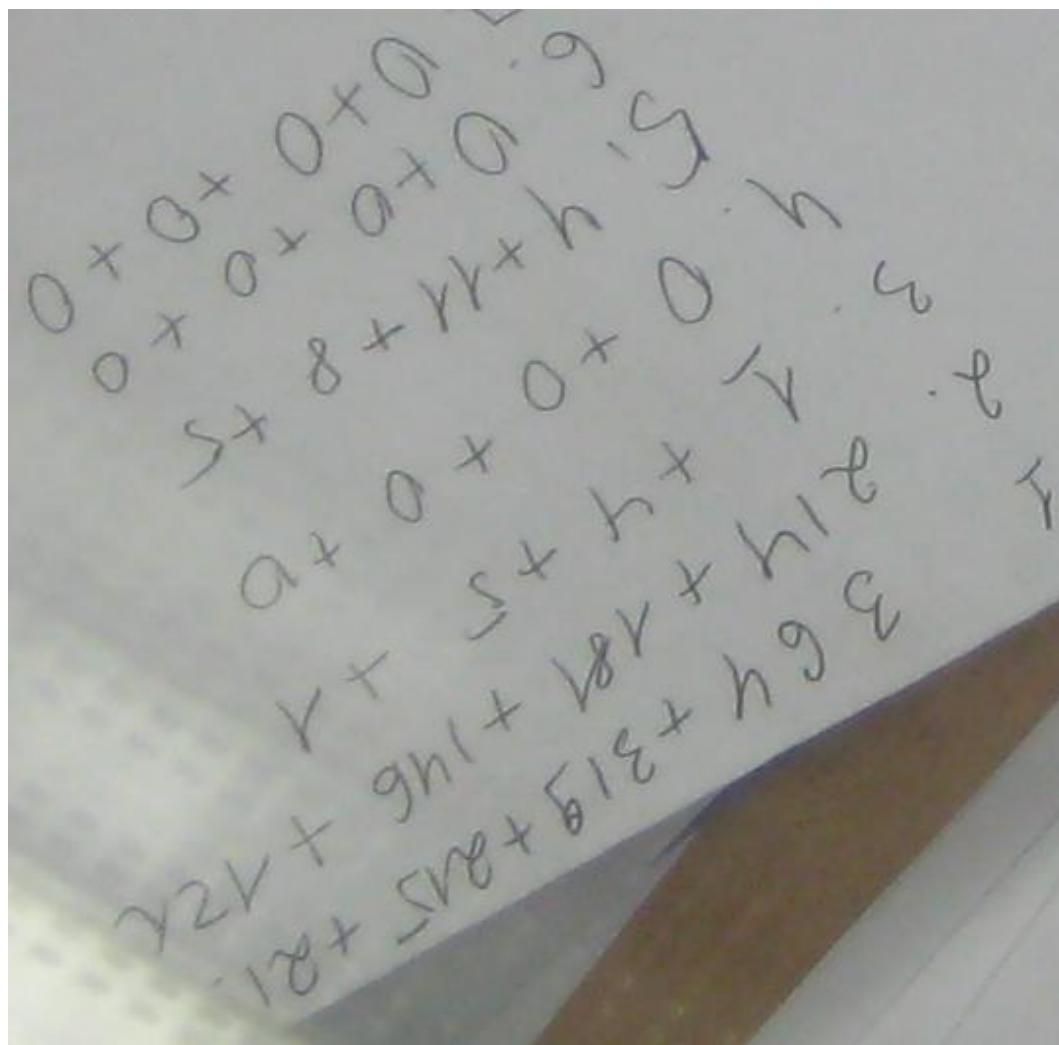 1 364+319+215+21.
2. 214+181+146+121
3. 1+4+5+1
4. 0+0+0+0
5. 4+11+8+5
6. 0+0+0+0
0+0+0+0